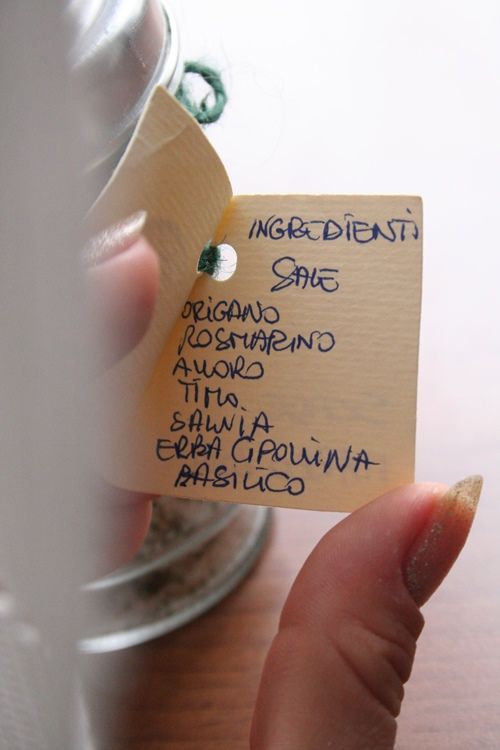 INGREDIENTI
SALE
ORIGANO
ROSMARINO
ALLORO
TIMO
SALVIA
ERBA CIPOLLINA
BASILICO